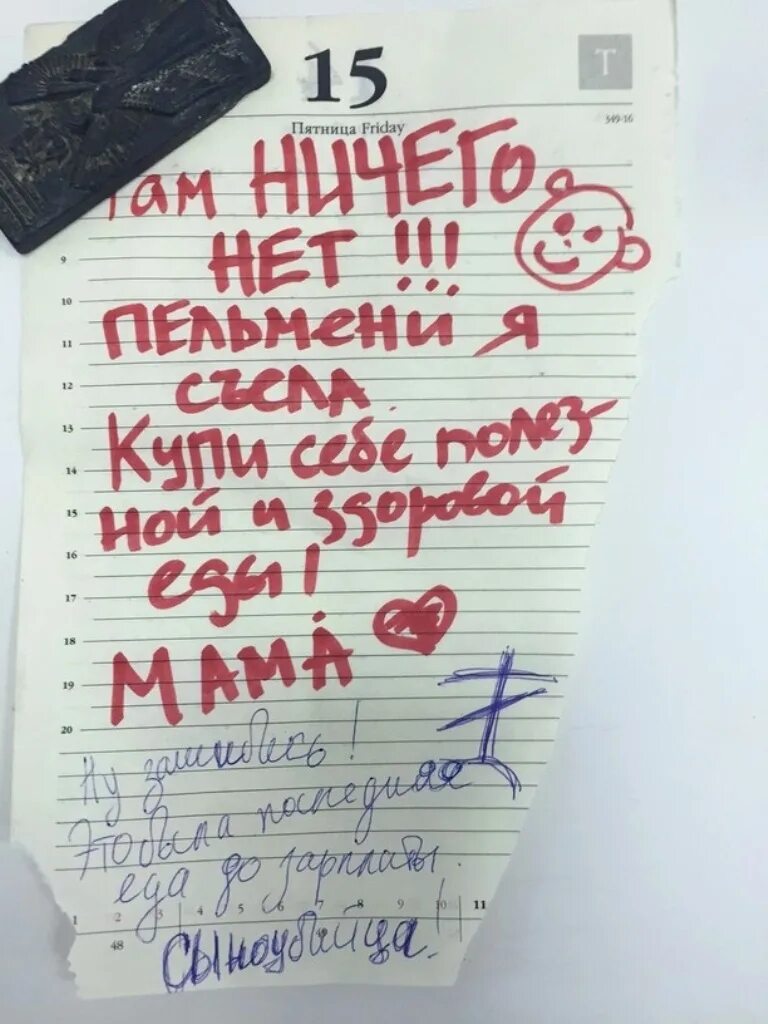 15
T
Пятница Friday
349-16
Там НИЧЕГО
НЕТ !!!
ПЕЛЬМЕНИ Я
СЪЕЛА.
КУПИ себе полез-
ной и здоровой
еды!
МАМА
Ну зашибись!
Это была последняя
еда до зарплаты.
Сыноубийца!
9
10
11
12
13
14
15
16
17
18
19
20
1 2 3 4 5 6 7 8 9 10 11
48